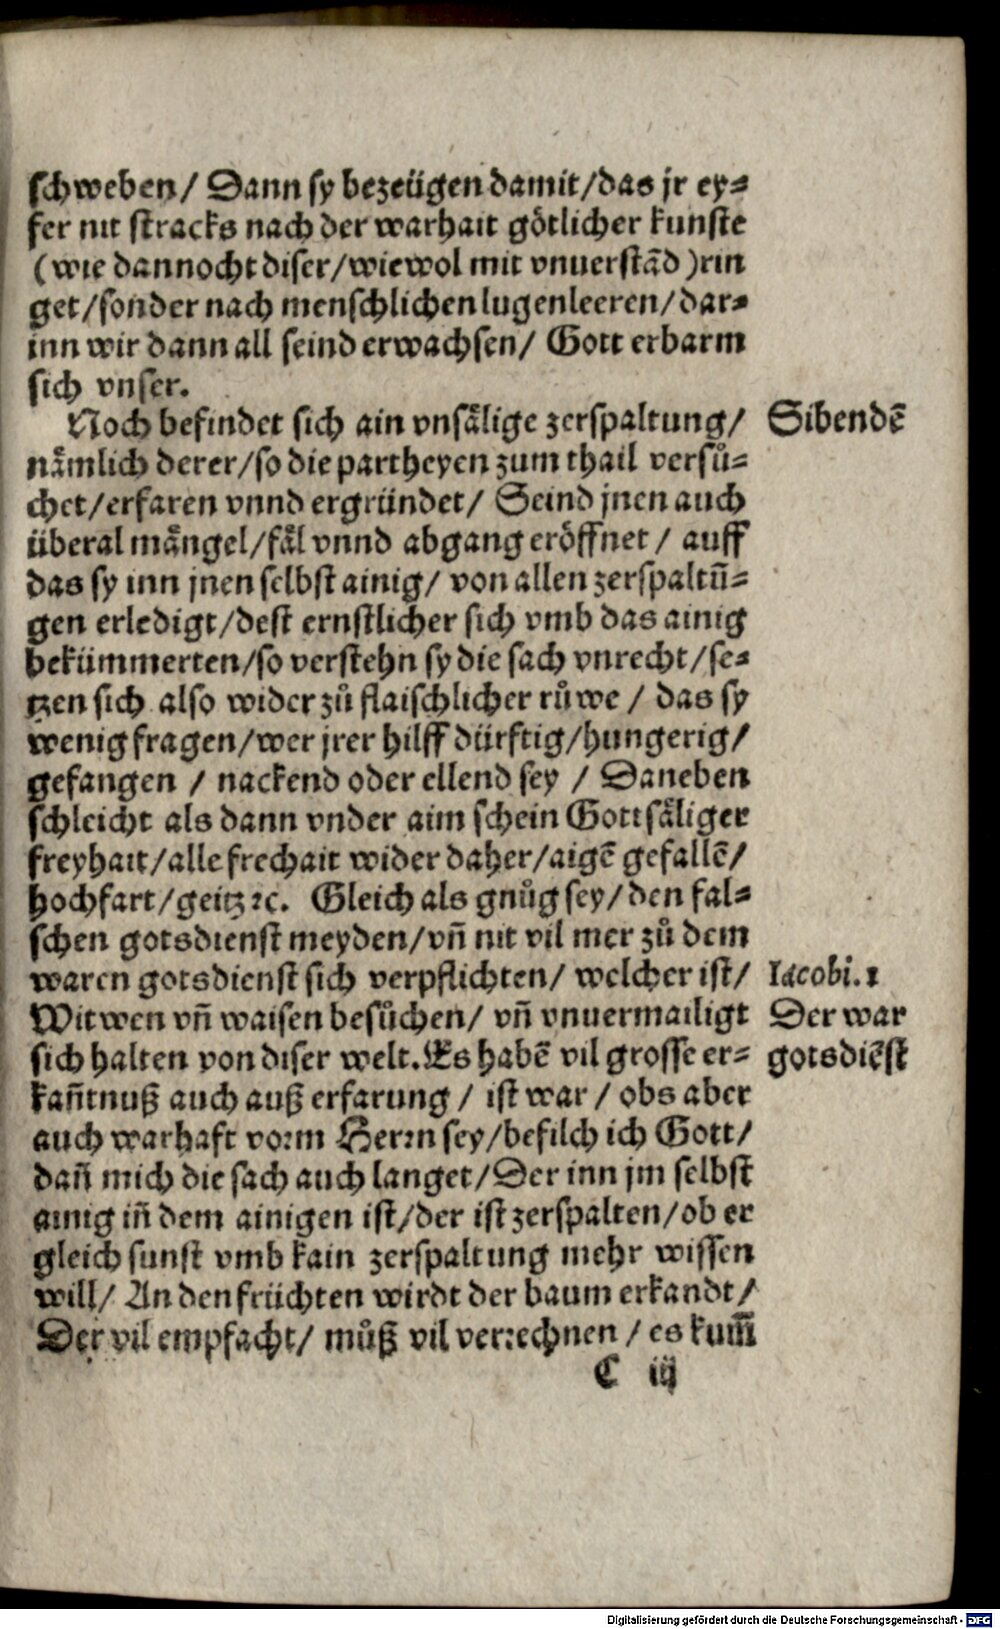 schweben/ Dann sy bezeügen damit/das jr ey⸗
fer nit stracks nach der warhait götlicher kunste
(wie dannocht diser/wiewol mit vnuerstãd)rin
get/sonder nach menschlichen lugenleeren/dar⸗
inn wir dann all seind erwachsen/ Gott erbarm
sich vnser.
Noch befindet sich ain vnsälige zerspaltung/ Sibendẽ
nämlich derer/so die partheyen zum thail versů⸗
chet/erfaren vnnd ergründet/ Seind jnen auch
überal mängel/fäl vnnd abgang eröffnet/ auff
das sy inn jnen selbst ainig/ von allen zerspaltũ⸗
gen erledigt/dest ernstlicher sich vmb das ainig
bekümmerten/so verstehn sy die sach vnrecht/se⸗
tzen sich also wider zů flaischlicher růwe/ das sy
wenig fragen/wer jrer hilff dürftig/hungerig/
gefangen / nackend oder ellend sey / Daneben
schleicht als dann vnder aim schein Gottsäliger
freyhait/alle frechait wider daher/aigẽ gefallẽ/
hochfart/geitz ꝛc. Gleich als gnůg sey/den fal⸗
schen gotsdienst meyden/vñ nit vil mer zů dem
waren gotsdienst sich verpflichten/ welcher ist/ Iacobi. 1
Witwen vñ waisen besůchen/ vñ vnuermailigt Der war
sich halten von diser welt. Es habẽ vil grosse er⸗ gotsdiẽst
kañtnuß auch auß erfarung / ist war / obs aber
auch warhaft voꝛm Herꝛn sey/befilch ich Gott/
dañ mich die sach auch langet/Der inn jm selbst
ainig iñ dem ainigen ist/der ist zerspalten/ob er
gleich sunst vmb kain zerspaltung mehr wissen
will/ An den früchten wirdt der baum erkandt/
Der vil empfacht/ můß vil verꝛechnen / es kum̃
C iij
Digitalisierung gefördert durch die Deutsche Forschungsgemeinschaft - DFG